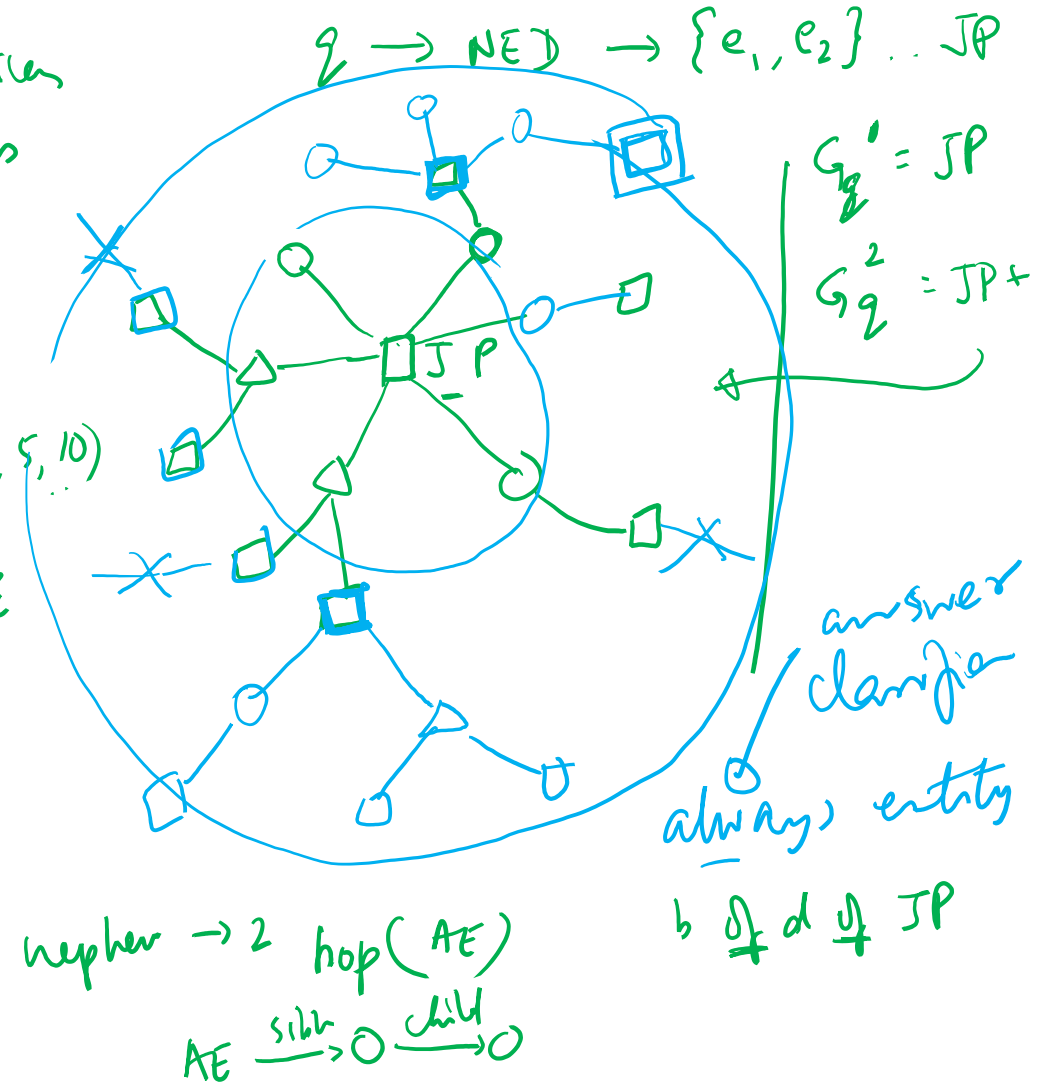 q → NED → {e₁, e₂} .. JP
G_q¹ = JP
G_q² = JP+
JP
5, 10)
answer
classifier
always entity
b of d of JP
nephew → 2 hop(AE)
AE sibl → child →